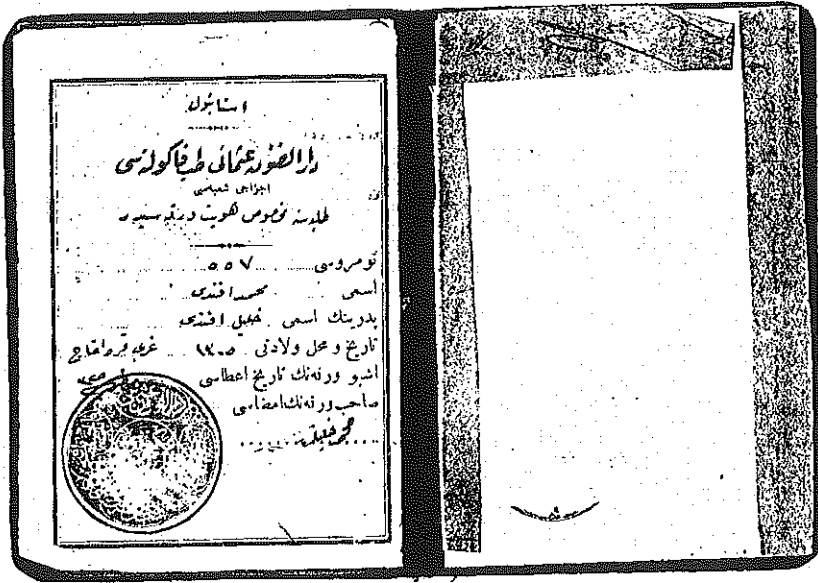 استانبول
دار الفنون عثمانی طب فاكولته‌سی
اجزاجی شعبه‌سی
طلبه‌سنه مخصوص هویت ورقه‌سیدر
نومروسی ٥٥٧
اسمی محمد افندی
پدرینك اسمی خلیل افندی
تاریخ و محل ولادتی ١٣٠٥ غربی قره‌اغاج
اشبو ورقه‌نك تاریخ اعطاسی
صاحب ورقه‌نك امضاسی
محمد خلیل